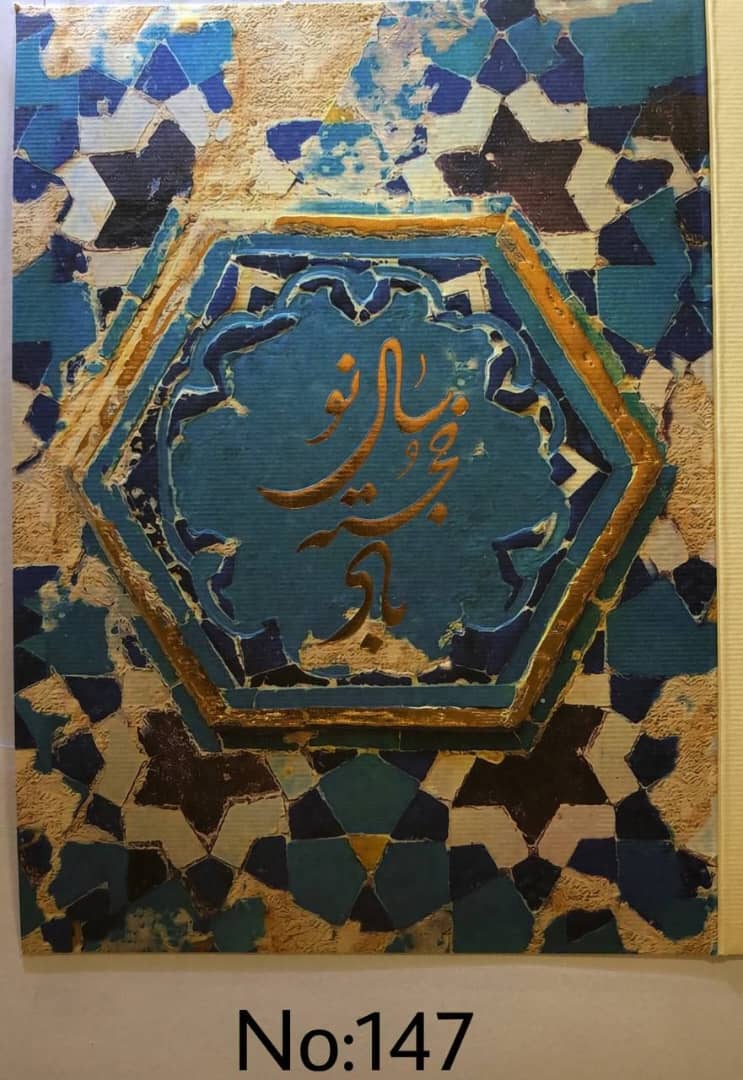 سال نو
خجسته
باد
No:147